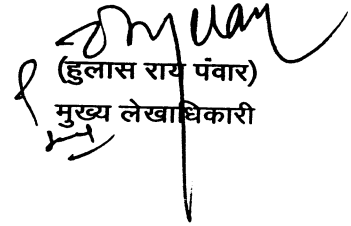 (हुलास राय पंवार)
मुख्य लेखाधिकारी